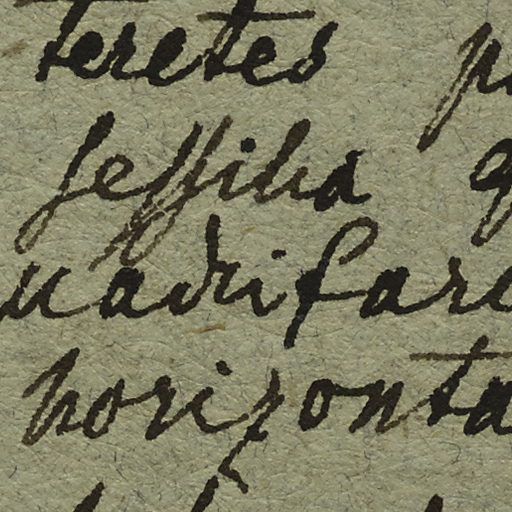 teretes
sessilia
uadrifar
horizonta